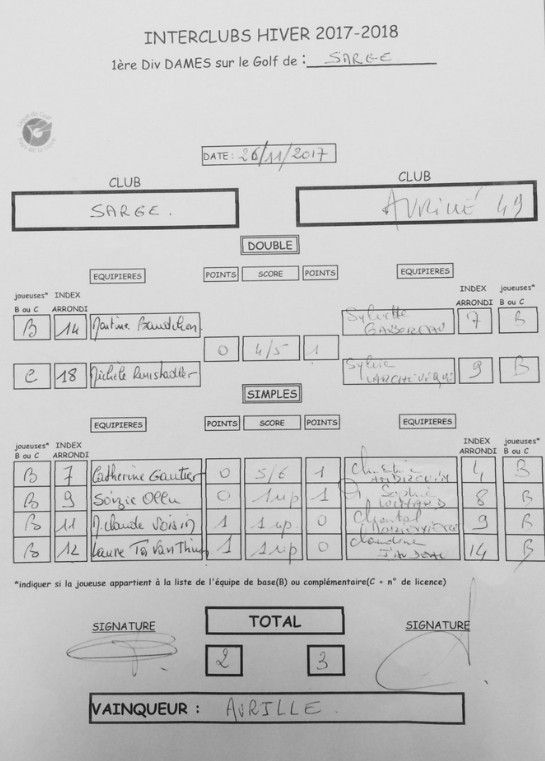 INTERCLUBS HIVER 2017-2018
1ère Div DAMES sur le Golf de : SARGE
DATE : 26/11/2017
CLUB CLUB
SARGE. AVRILLÉ 49
DOUBLE
EQUIPIERES POINTS SCORE POINTS EQUIPIERES
joueuses* INDEX INDEX joueuses*
B ou C ARRONDI ARRONDI B ou C
B 14 Martine Sylvette 7 B
0 4/5 1
C 18 Michèle Sylvie 9 B
SIMPLES
EQUIPIERES POINTS SCORE POINTS EQUIPIERES
joueuses* INDEX INDEX joueuses*
B ou C ARRONDI ARRONDI B ou C
B 7 Catherine Gautier 0 5/6 1 4 B
B 9 Soizic Ollu 0 1up 1 Sophie 8 B
B 11 M.claude Voisin 1 1 up 0 Chantal 9 B
B 12 Laure 1 1up 0 Claudine 14 B
*indiquer si la joueuse appartient à la liste de l'équipe de base(B) ou complémentaire(C + n° de licence)
SIGNATURE TOTAL SIGNATURE
2 3
VAINQUEUR : AVRILLE.